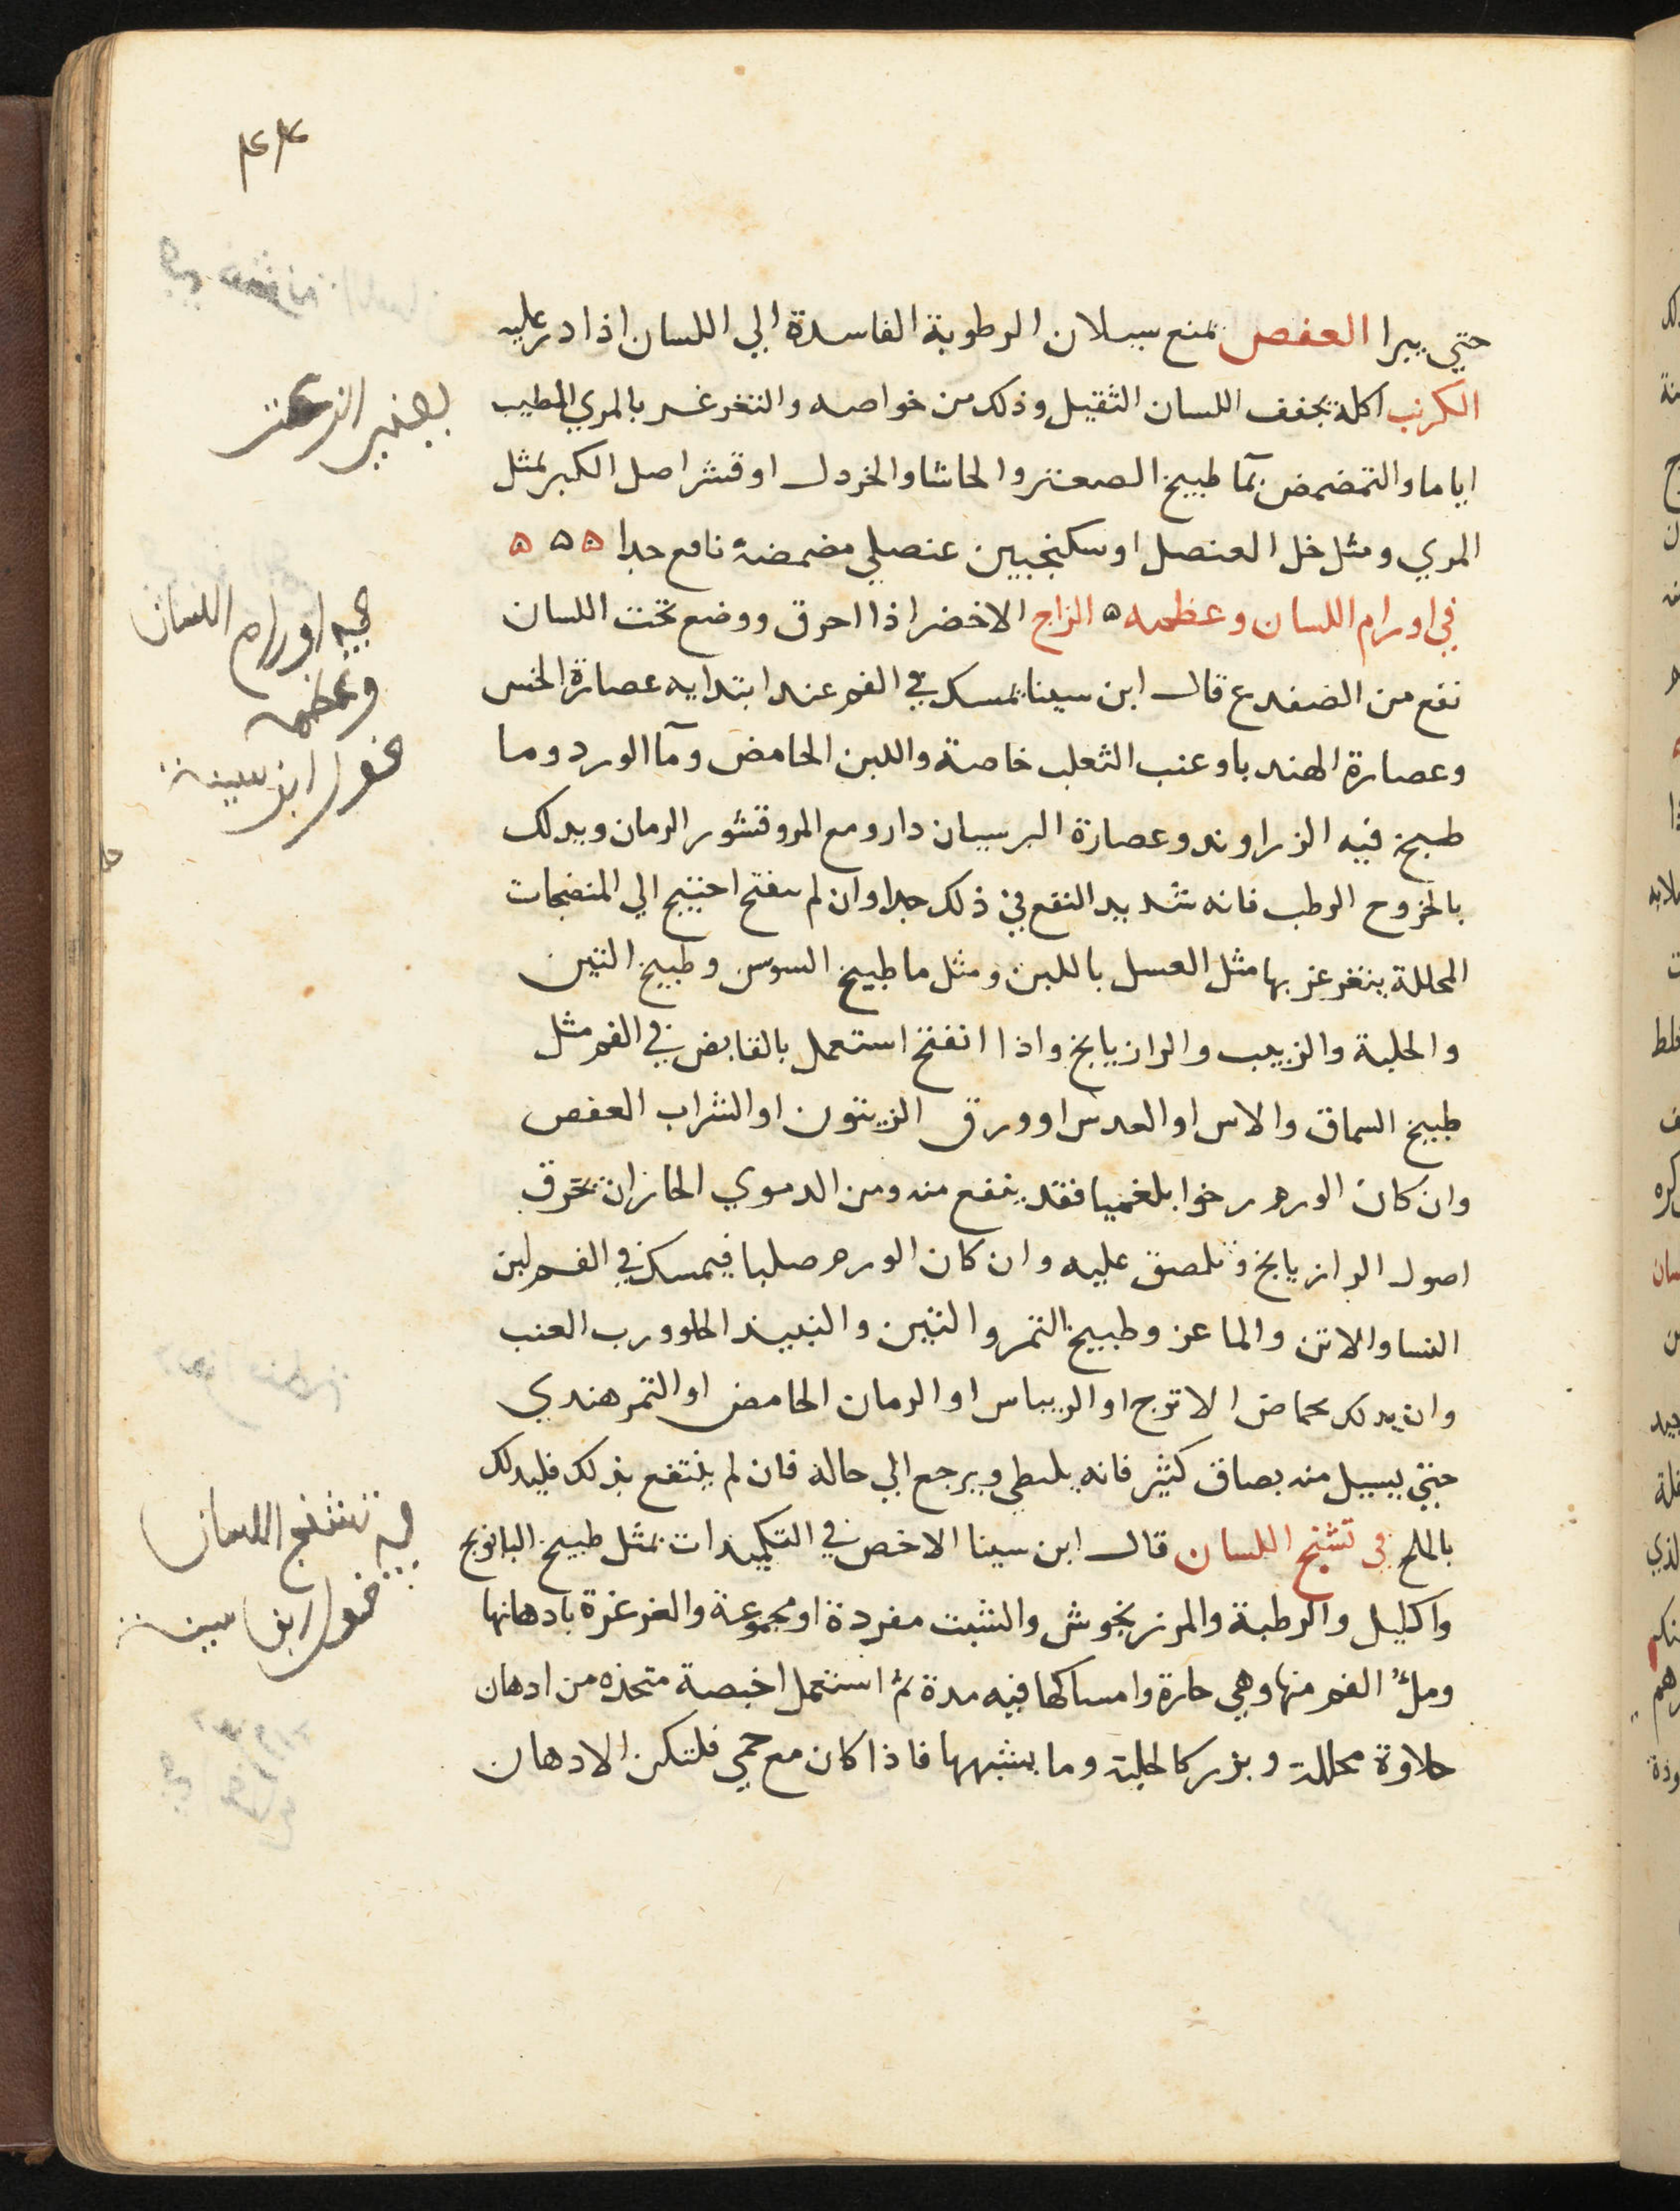 حتي يبرا العفص يمنع سيلان الرطوبة الفاسدة الي اللسان اذا در عليه
الكرنب اكله يخفف اللسان الثقيل وذلك من خواصه والتغرغر بالمري المطيب
اياما والتمضمض بمآ طبيخ الصعتر والحاشا والخردل او قشر اصل الكبر بمثل
المري ومثل خل العنصل او سكنجبين عنصلي مضمضة نافع جدا ه ه ه
في اورام اللسان وعظمه ه الزاج الاخضر اذا احرق ووضع تحت اللسان
نفع من الضفدع قال ابن سينا يمسك في الفم عند ابتدايه عصارة الخس
وعصارة الهندبا وعنب الثعلب خاصة واللبن الحامض ومآ الورد وما
طبخ فيه الزراوند وعصارة البرسيان دارو مع المر وقشور الرمان ويدلك
بالخروح الرطب فانه شديد النفع في ذلك جدا وان لم ينفتح احتيج الي المنضجات
المحللة يتغرغر بها مثل العسل باللبن ومثل ما طبيخ السوس وطبيخ التين
والحلبة والزبيب والرازيانج واذا انفتح استعمل بالقابض في الفم مثل
طبيخ السماق والاس او العدس او ورق الزيتون او الشراب العفص
وان كان الورم رخوا بلغميا فقد ينفع منه ومن الدموي الحار ان تحرق
اصول الرازيانج وتلصق عليه وان كان الورم صلبا فيمسك في الفم لبن
النسا والاتن والماعز وطبيخ التمر والتين والنبيذ الحلو ورب العنب
وان يدلك بحماض الاترج او الريباس او الرمان الحامض او التمر هندي
حتي يسيل منه بصاق كثير فانه يلطي ويرجع الي حاله فان لم ينتفع بذلك فليدلك
بالملح في تشنج اللسان قال ابن سينا الاخص في التكميدات بمثل طبيخ البابونج
واكليل والرطبة والمرزنجوش والشبت مفردة او مجموعة والغرغرة بادهانها
وملؤ الفم منها وهي حارة وامساكها فيه مدة ثم استعمل اخبصة متخذه من ادهان
حلاوة محللة وبزر كالحلبة وما يشبهها فاذا كان مع حمي فلتكن الادهان
اورام اللسان
وعظمه
ابن سينه
في تشنج اللسان
ابن سينه